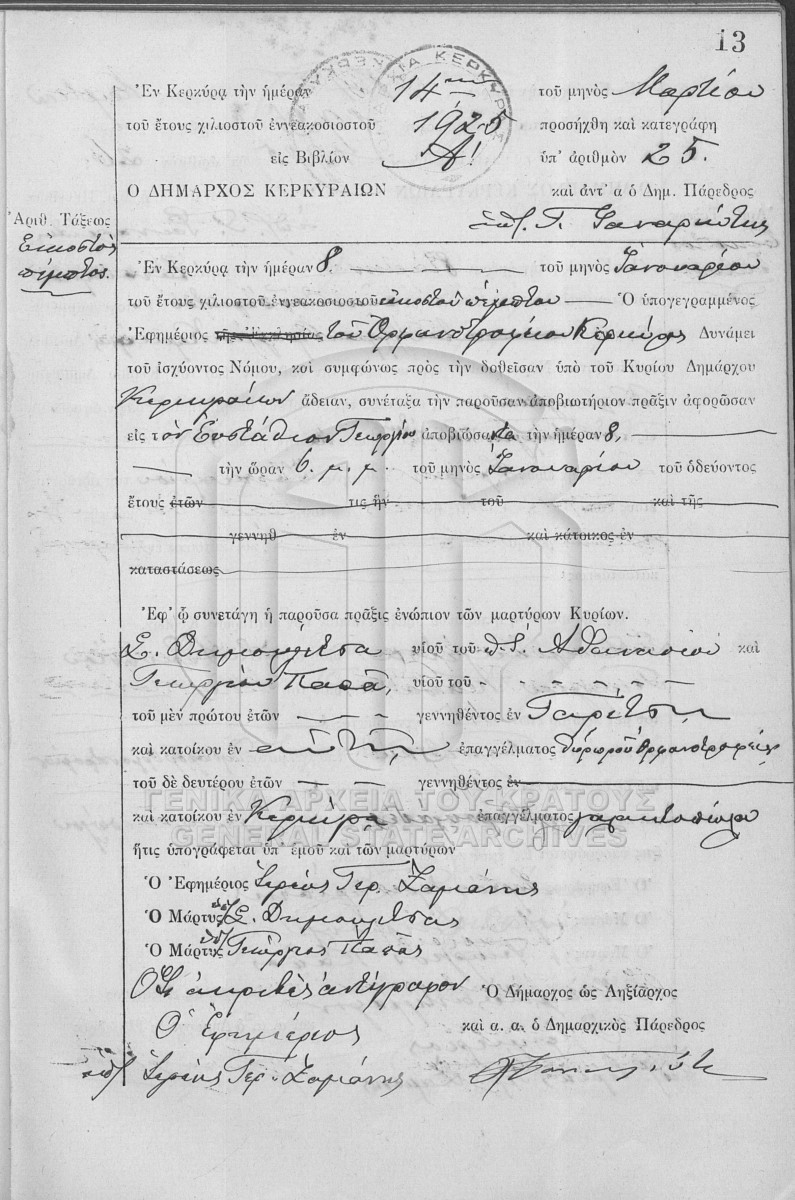 13
Ἐν Κερκύρᾳ τὴν ἡμέραν 14ην τοῦ μηνὸς Μαρτίου
τοῦ ἔτους χιλιοστοῦ ἐννεακοσιοστοῦ 1925 προσήχθη καὶ κατεγράφη
εἰς Βιβλίον Α! ὑπ' ἀριθμὸν 25.
Ο ΔΗΜΑΡΧΟΣ ΚΕΡΚΥΡΑΙΩΝ καὶ ἀντ' α ὁ Δημ. Πάρεδρος
Ἀριθ. Τάξεως
Εἰκοστὸς
πέμπτος.
Ἐν Κερκύρᾳ τὴν ἡμέραν 8. τοῦ μηνὸς Ἰανουαρίου
τοῦ ἔτους χιλιοστοῦ ἐννεακοσιοστοῦ εἰκοστοῦ πέμπτου Ὁ ὑπογεγραμμένος
Ἐφημέριος τῆς Ἐκκλησίας τοῦ Ὀρφανοτροφείου Κερκύρας Δυνάμει
τοῦ ἰσχύοντος Νόμου, καὶ συμφώνως πρὸς τὴν δοθεῖσαν ὑπὸ τοῦ Κυρίου Δημάρχου
Κερκυραίων ἄδειαν, συνέταξα τὴν παροῦσαν ἀποβιωτήριον πρᾶξιν ἀφορῶσαν
εἰς τὸν Εὐστάθιον Γεωργίου ἀποβιώσαντα τὴν ἡμέραν 8,
τὴν ὥραν 6. μ. μ. τοῦ μηνὸς Ἰανουαρίου τοῦ ὁδεύοντος
ἔτους ἐτῶν τις ἦν τοῦ καὶ τῆς
γεννηθ ἐν καὶ κάτοικος ἐν
καταστάσεως
Ἐφ' ᾧ συνετάγη ἡ παροῦσα πρᾶξις ἐνώπιον τῶν μαρτύρων Κυρίων.
Σ. Δημουλίτσα υἱοῦ τοῦ Ἀθανασίου καὶ
Γεωργίου Παπᾶ, υἱοῦ τοῦ
τοῦ μὲν πρώτου ἐτῶν γεννηθέντος ἐν Γαρίτσῃ
καὶ κατοίκου ἐν αὐτῇ, ἐπαγγέλματος θυρωροῦ Ὀρφανοτροφείου
τοῦ δὲ δευτέρου ἐτῶν γεννηθέντος ἐν
καὶ κατοίκου ἐν Κερκύρᾳ ἐπαγγέλματος γαλακτοπώλου
ΓΕΝΙΚΑ ΑΡΧΕΙΑ ΤΟΥ ΚΡΑΤΟΥΣ
GENERAL STATE ARCHIVES
ἥτις ὑπογράφεται ὑπ' ἐμοῦ καὶ τῶν μαρτύρων
Ὁ Ἐφημέριος Ἱερεὺς Γερ. Ζαμάνης
Ὁ Μάρτυς Σ. Δημουλίτσας
Ὁ Μάρτυς Γεώργιος Παπᾶς
ἀκριβὲς ἀντίγραφον Ὁ Δήμαρχος ὡς Ληξίαρχος
Ὁ Ἐφημέριος καὶ α. α. ὁ Δημαρχικὸς Πάρεδρος
Ἱερεὺς Γερ. Ζαμάνης